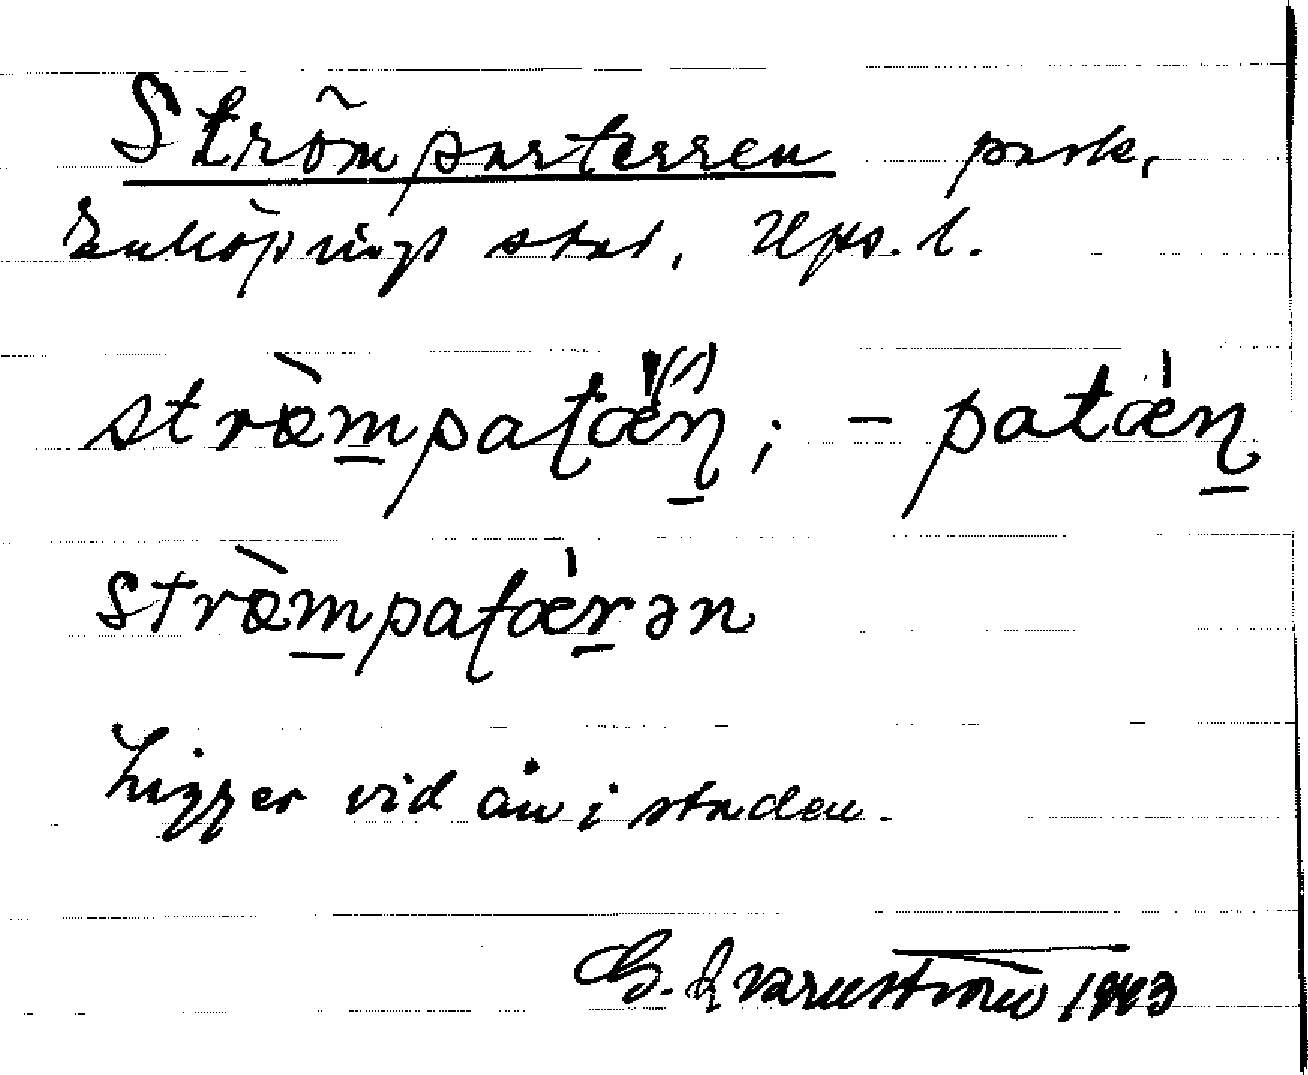 Strömparterren park,
Enköpings stad, Upps. l.
strœ̀m̱patǽṉ; – patǽṉ
strœ̀m̱patǽṟən
Ligger vid ån i staden.
G. Qvarnström 1943